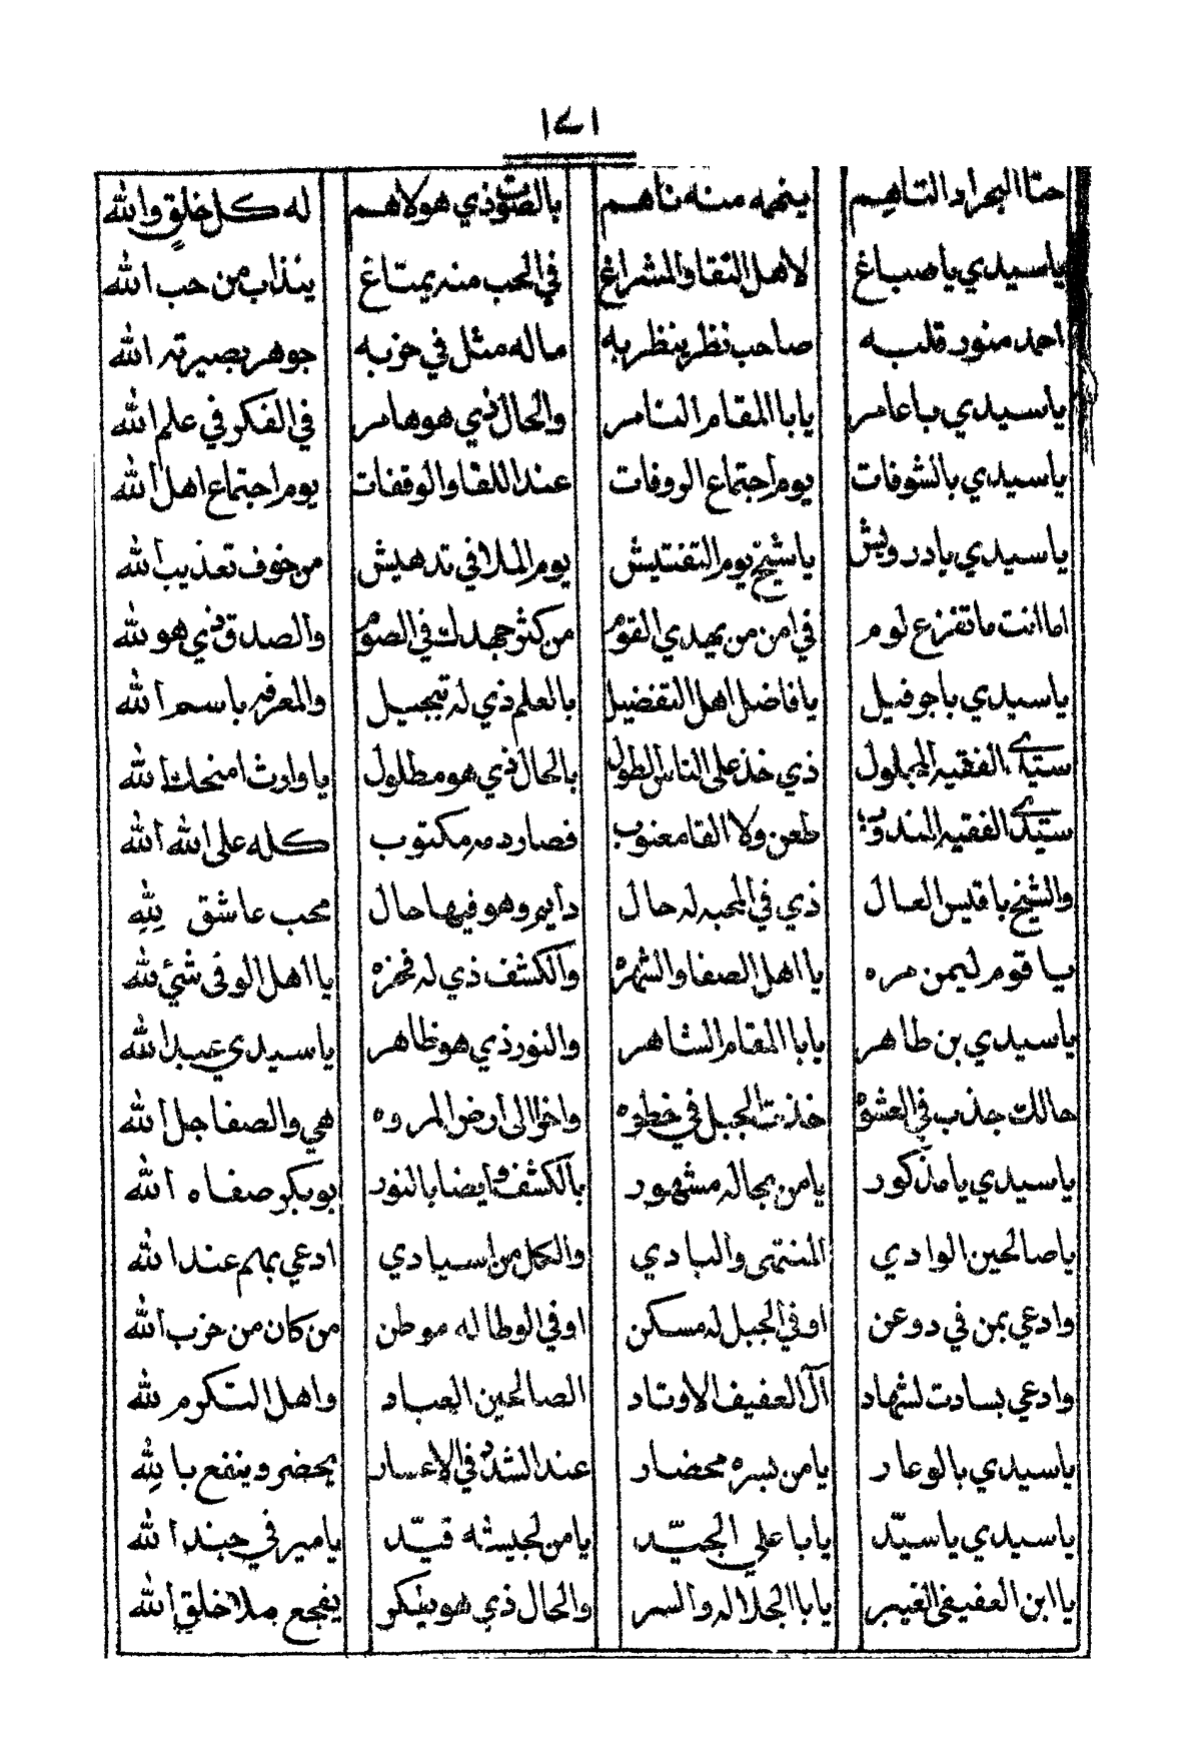 ١٤١
حتا البحر اد التاهيم ينحمه منه ناهم بالصوت ذي هو لاهم له كل خلق والله
ياسيدي ياصباغ لاهل النقا والمشراغ في الحب منه يمتاغ ينذاب من حب الله
احمد منور قلبه صاحب نظر ينظر به ماله مثل في حزبه جوهر بصيرته الله
ياسيدي باعامر يابا المقام النامر والحال ذي هو هامر في الفكر في علم الله
ياسيدي بالشوفات يوم اجتماع الروفات عند اللقا والوقفات يوم اجتماع اهل الله
ياسيدي يادرويش ياشيخ يوم التفتيش يوم الملا في تدهيش من خوف تعذيب الله
اما انت ما تفزع لوم في امن من يهدي القوم من كثر جهدك في الصوم والصدق ذي هو لله
ياسيدي باجوفيل يافاضل اهل التفضيل بالعلم ذي له تبجيل والمعرفه باسم الله
سيدي الفقيه المجلول ذي خذ على الناس الطول بالحال ذي هو مطلول ياوارث امنحك الله
سيدي الفقيه المندوب طعن ولا القا معنوب فصار دمه مكتوب كله على الله الله
والشيخ باقيس العال ذي في المحبه له حال دايم وهو فيها حال محب عاشق لله
ياقوم ليمن مره يااهل الصفا والشهره والكشف ذي له فخره يااهل الوفى شيء لله
ياسيدي بن طاهر يابا المقام الشاهر والنور ذي هو ظاهر ياسيدي عبد الله
حالك جذب في العشوه خذت الجبل في خطوه واخوا الى ارض المروه هي والصفا جل الله
ياسيدي يامذكور يامن بجاله مشهور بالكشف وايضا بالنور بوبكر صفاه الله
ياصالحين الوادي المنتهى والبادي والكل من اسيادي ادعي بهم عند الله
وادعي بمن في دوعن او في الجبل له مسكن او في الوطا له موطن من كان من حزب الله
وادعي بسادت لشهاد آل العفيف الاوتاد الصالحين العباد واهل التكرم لله
ياسيدي بالوعار يامن بسره محضار عند الشده في الاعسار يحضر وينفع بالله
ياسيدي ياسيد يابا علي الجيد يامن لجيشه قيد يامير في جند الله
ياابن العفيف الغبر يابا الجلاله والسر والحال ذي هو ينكر يفجع ملا خلق الله